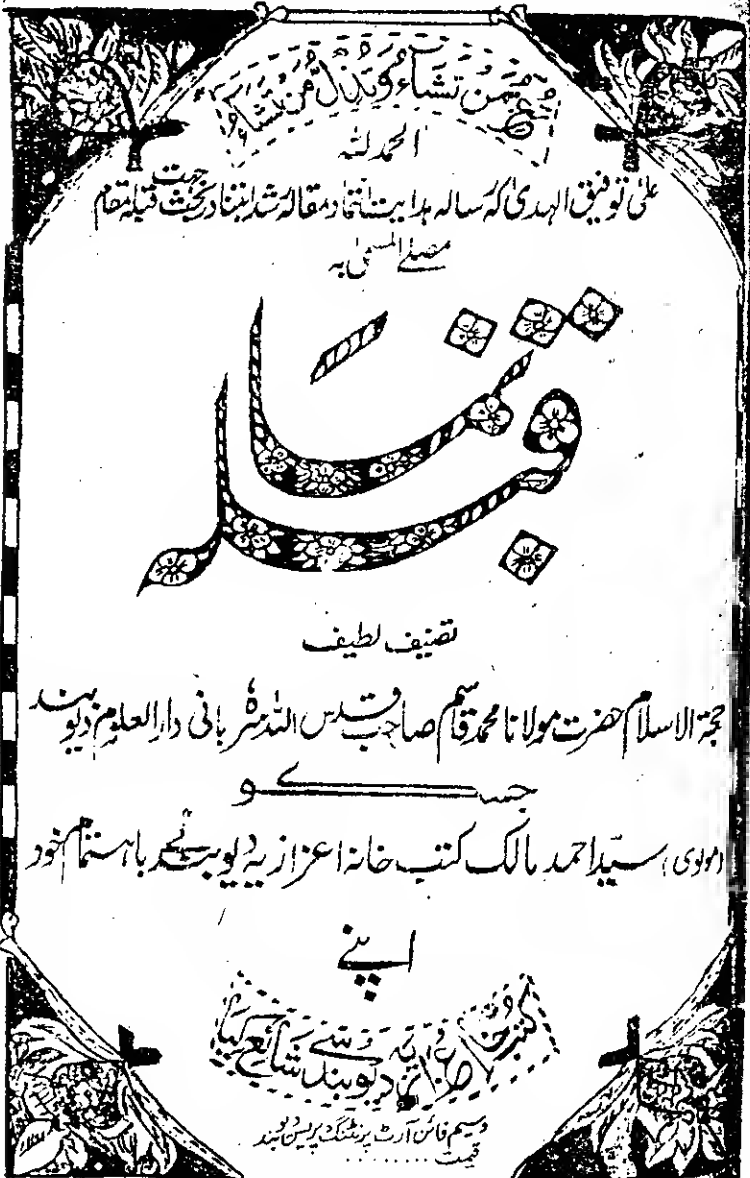 وتعز من تشاء وتذل من تشاء
الحمد للہ
علیٰ توفیق الہدیٰ کہ رسالہ ہدایت انتماد مقالہ رشد ابتنا در بحث جہت قبلہ مقام
مصلے المسمیٰ بہ
قبلہ نما
تصنیف لطیف
حجۃ الاسلام حضرت مولانا محمد قاسم صاحب قدس اللہ سرہ بانی دار العلوم دیوبند
جس کو
(مولوی) سید احمد مالک کتب خانہ اعزازیہ دیوبند نے باہتمام خود
اپنے
کتب خانہ اعزازیہ دیوبند سے شائع کیا
وسیم فائن آرٹ پرنٹنگ پریس دیوبند
قیمت ........